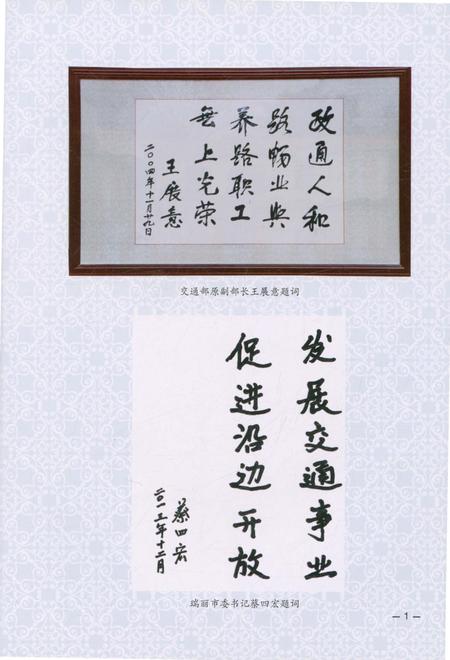 政通人和
路畅业兴
养路职工
無上光荣
王展意
二〇〇四年十一月廿九日
交通部原副部长王展意题词
发展交通事业
促进沿边开放
蔡四宏
二〇一三年十二月
瑞丽市委书记蔡四宏题词
— 1 —